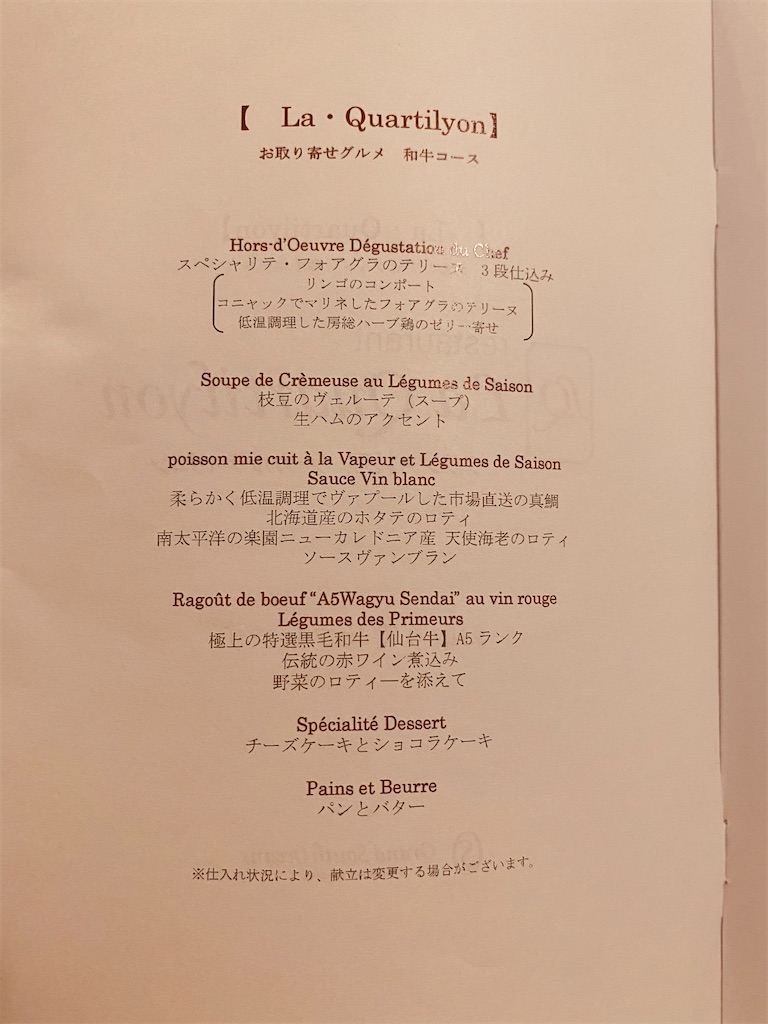 【 La・Quartilyon】
お取り寄せグルメ 和牛コース
Hors-d'Oeuvre Dégustation du Chef
スペシャリテ・フォアグラのテリーヌ 3段仕込み
リンゴのコンポート
コニャックでマリネしたフォアグラのテリーヌ
低温調理した房総ハーブ鶏のゼリー寄せ
Soupe de Crèmeuse au Légumes de Saison
枝豆のヴェルーテ (スープ)
生ハムのアクセント
poisson mie cuit à la Vapeur et Légumes de Saison
Sauce Vin blanc
柔らかく低温調理でヴァプールした市場直送の真鯛
北海道産のホタテのロティ
南太平洋の楽園ニューカレドニア産 天使海老のロティ
ソースヴァンブラン
Ragoût de boeuf “A5Wagyu Sendai” au vin rouge
Légumes des Primeurs
極上の特選黒毛和牛【仙台牛】A5ランク
伝統の赤ワイン煮込み
野菜のロティ―を添えて
Spécialité Dessert
チーズケーキとショコラケーキ
Pains et Beurre
パンとバター
※仕入れ状況により、献立は変更する場合がございます。